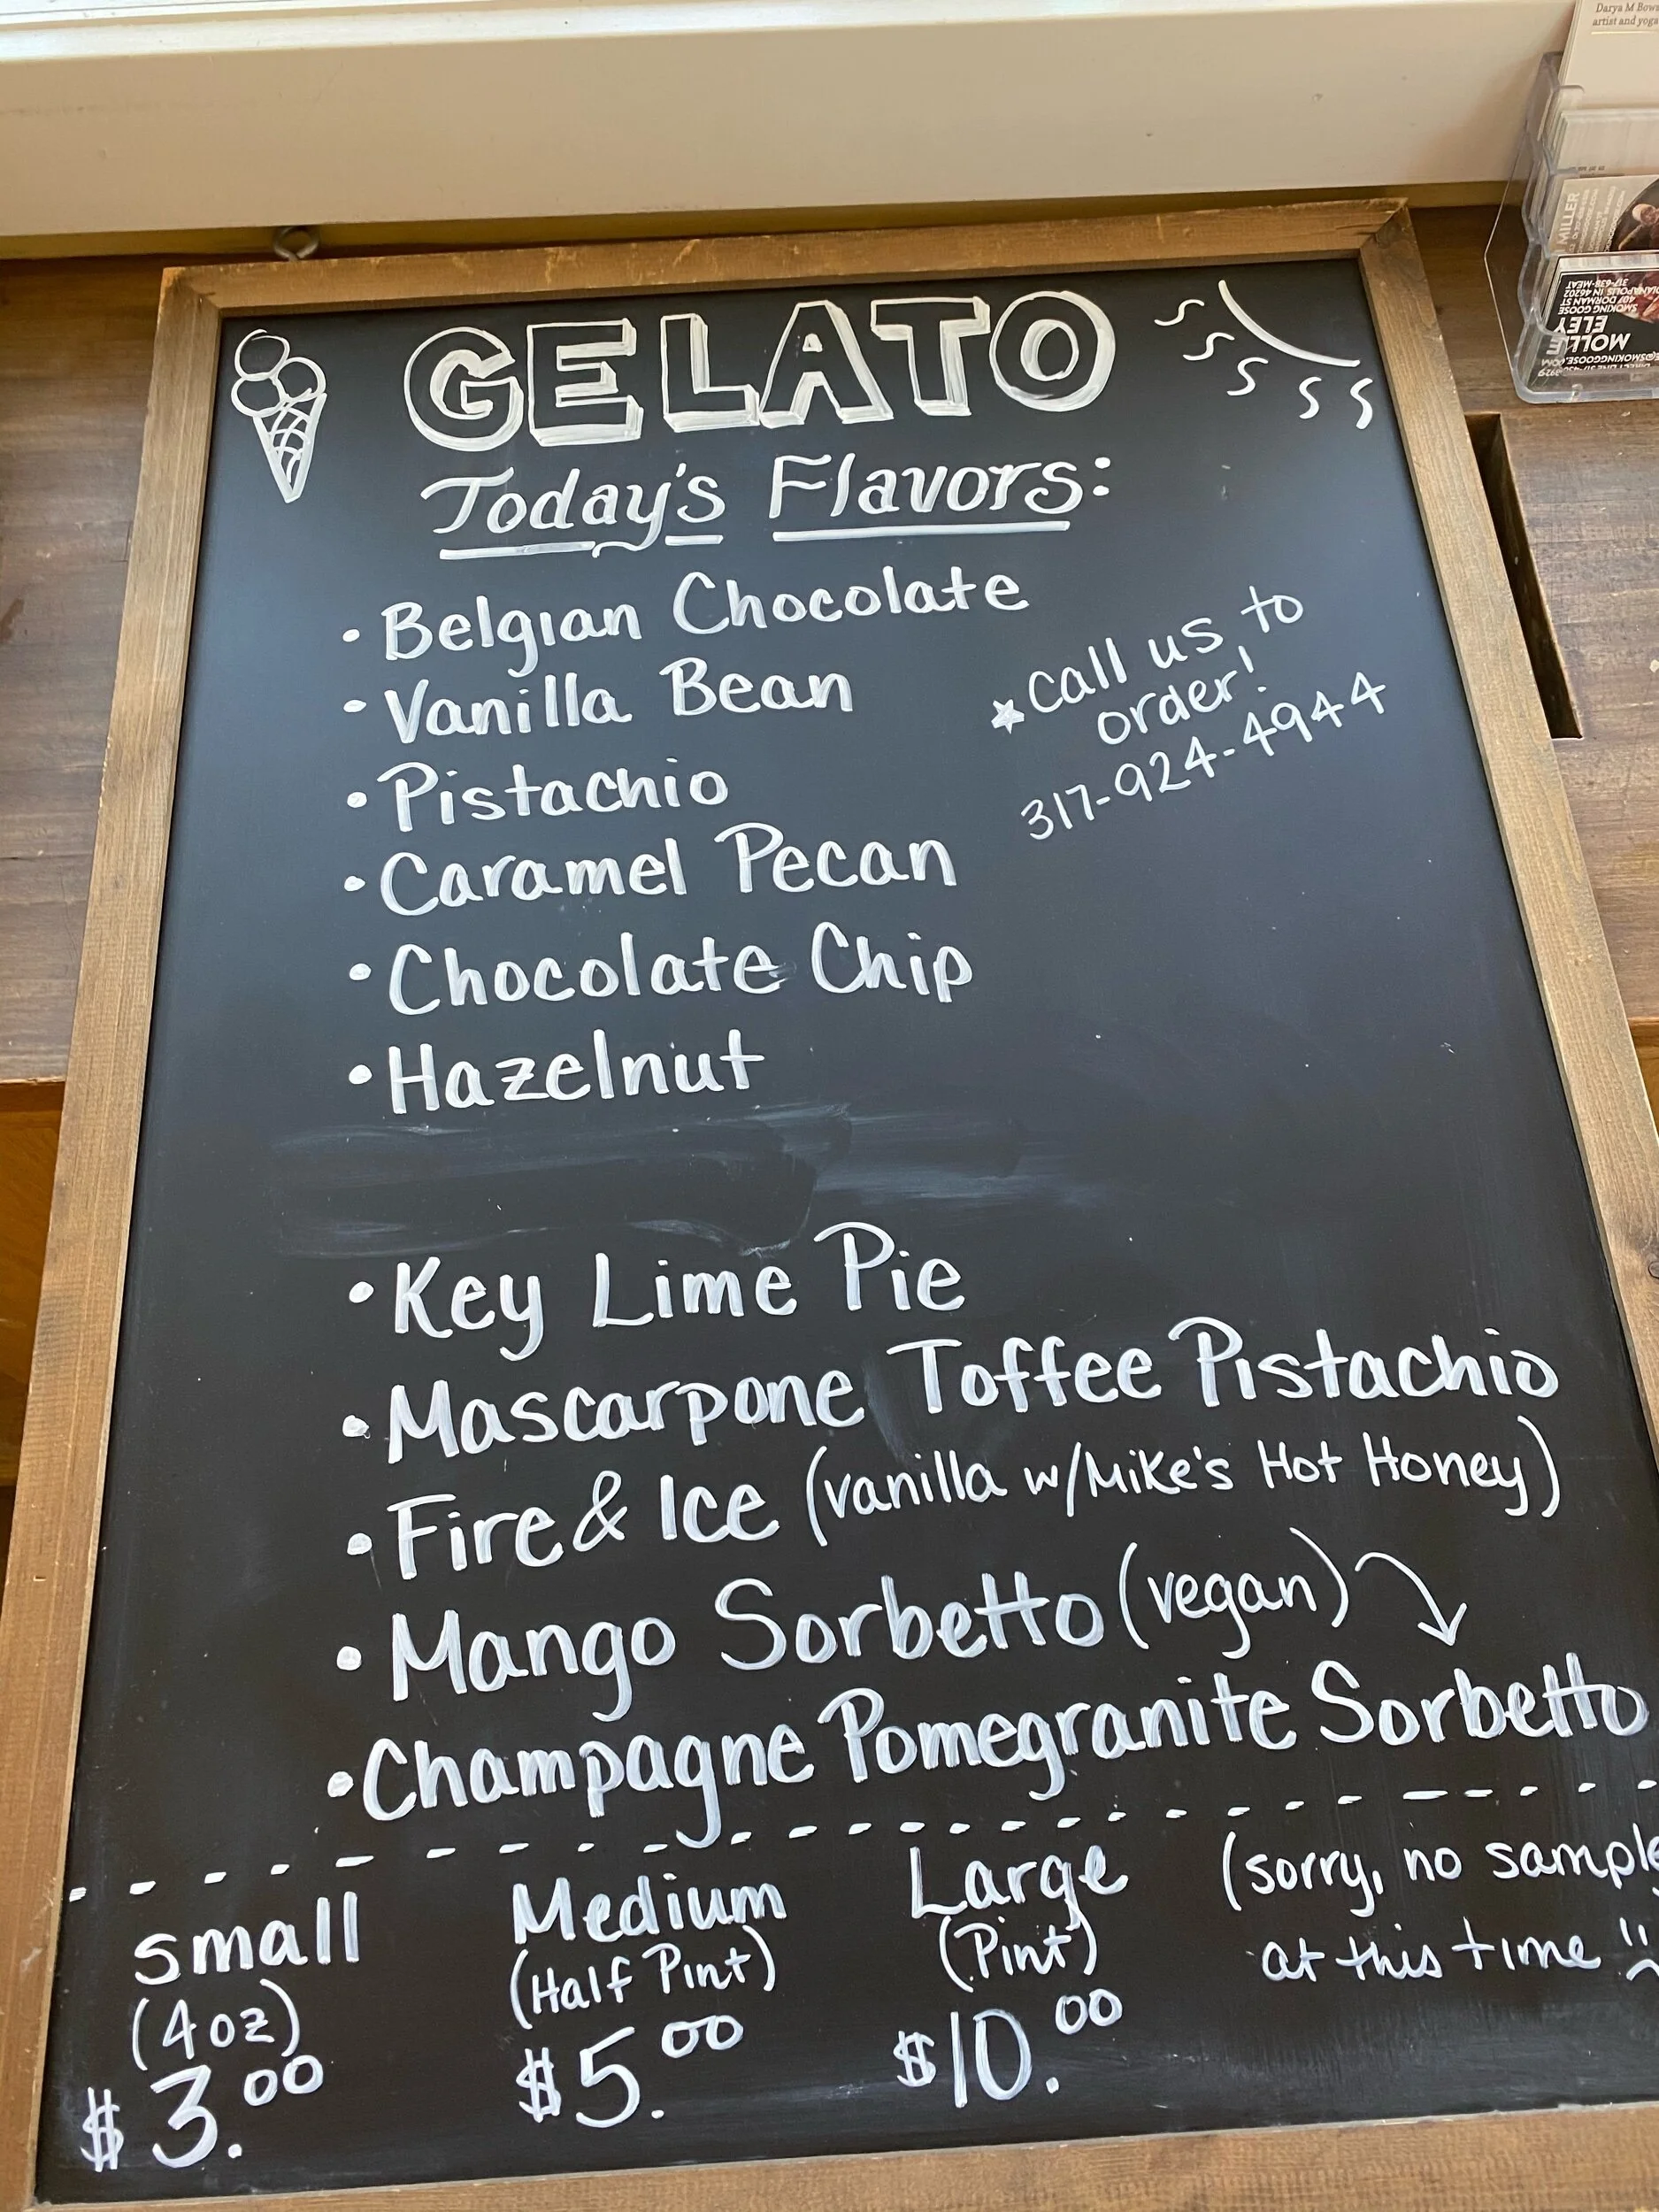 Darya M Bow
artist and yoga
MILLER
MOLL
ELEY
SMOKING GOOSE
407 DORMAN ST
INDIANAPOLIS IN 46202
317-638-MEAT
GELATO
Today's Flavors:
• Belgian Chocolate
• Vanilla Bean
call us to
order!
317-924-4944
• Pistachio
• Caramel Pecan
• Chocolate Chip
• Hazelnut
• Key Lime Pie
• Mascarpone Toffee Pistachio
• Fire & Ice (vanilla w/Mike's Hot Honey)
• Mango Sorbetto (vegan)
• Champagne Pomegranite Sorbetto
small
(4oz)
$3.00
Medium
(Half Pint)
$5.00
Large
(Pint)
$10.00
(sorry, no sample
at this time